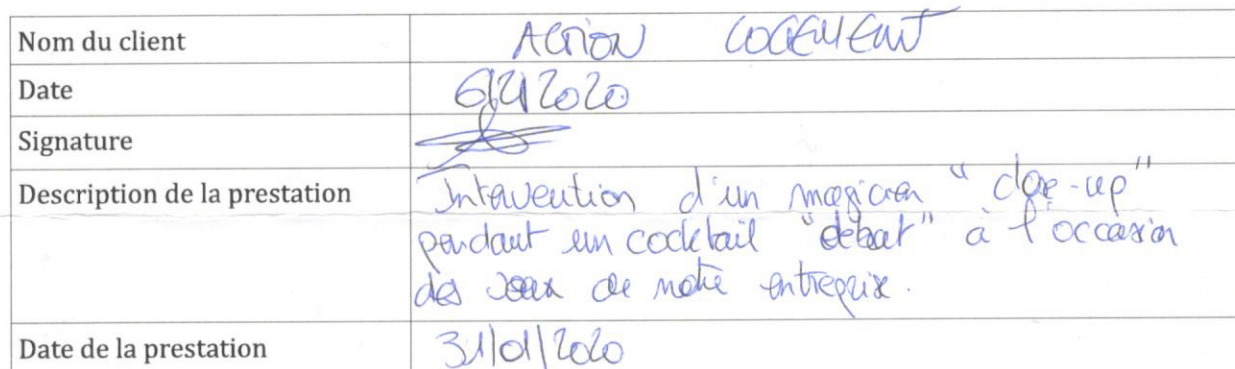 Nom du client ACTION LOGEMENT
Date 6/2/2020
Signature
Description de la prestation Intervention d'un magicien "close-up"
pendant un cocktail "debout" à l'occasion
des voeux de notre entreprise.
Date de la prestation 31/01/2020